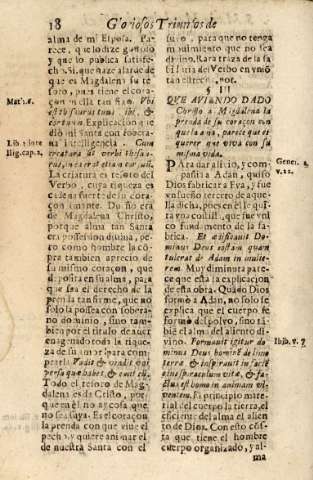 18 Gloriosos Triunfos de
alma de mi Esposa. Pa-
rece, que lo dize gozoso
y que lo publica satisfe-
cho, que haze alarde de
que es Magdalena su te-
soro, para tiene el cora-
çon en ella tan fixo. Vbi
est thesaurus tuus, ibi, &
cor tuum. Explicacion que
diò mi Santa con sobera-
na inteligencia. Cum
creatura sit verbi thesau-
rus,
La criatura es tesoro del
Verbo, cuya riqueza es
el cora-
çon amante. De modo era
de Magdalena Christo,
porque alma tan Santa
era possession divina, pe-
ro como hombre la cõ-
pra tambien a precio de
su mismo coraçon, que
deposita en su alma, para
que sea el derecho de la
prenda tan firme, que no
solo la possea con sobera-
no dominio, sino tam-
bien por el titulo de aver
enagenado toda la rique-
za de su amor para com-
prarla. Vadit & vendidit vni-
versa quæ habet, & emit eã.
Todo el tesoro de Mag-
dalena es de Christo, por-
que en èl no ay cosa que
no sea suya. Es el coraçon
la prenda con que vive el
pecho, y quiere animar el
de nuestra Santa con el
Mat. 6.
Lib. 1 inte
llig. cap. 2.
suyo, para que no tenga
movimiento que no sea
divino. Rara traza de la sa-
biduria del Verbo en
tan
§ III
QVE AVIENDO DADO
Christo a Magdalena la
prenda de su coraçon en
que la ama, parece que el
querer que viva con su
misma vida.
PAra dar alivio, y com-
pañia a Adan, quiso
Dios fabricar a Eva, y fue
vn sueño tercero de aque-
lla dicha, pues en el le qui-
ta vna costilla, que fue vni-
co fundamento de la fa-
brica. Et ædificavit Do-
minus Deus costam quam
tulerat de Adam in mulie-
rem. Muy diminuta pare-
ce que està la explicacion
de esta obra. Quãdo Dios
formò a Adan, no solo se
explica que el cuerpo se
formò del polvo, sino tã-
bien el alma del aliento di-
vino. Formavit igitur do-
minus Deus hominẽ de limo
terræ & inspiravit in facie
eius spiraculum vitæ, & fa-
ctus est homo in animam vi-
ventem. El principio mate-
rial del cuerpo la tierra, el
eficiente del alma el alien-
to de Dios. Con esto cõs-
ta que tiene el hombre
cuerpo organizado, y al-
ma
Genes. 2.
v. 22.
Ibid. v. 7